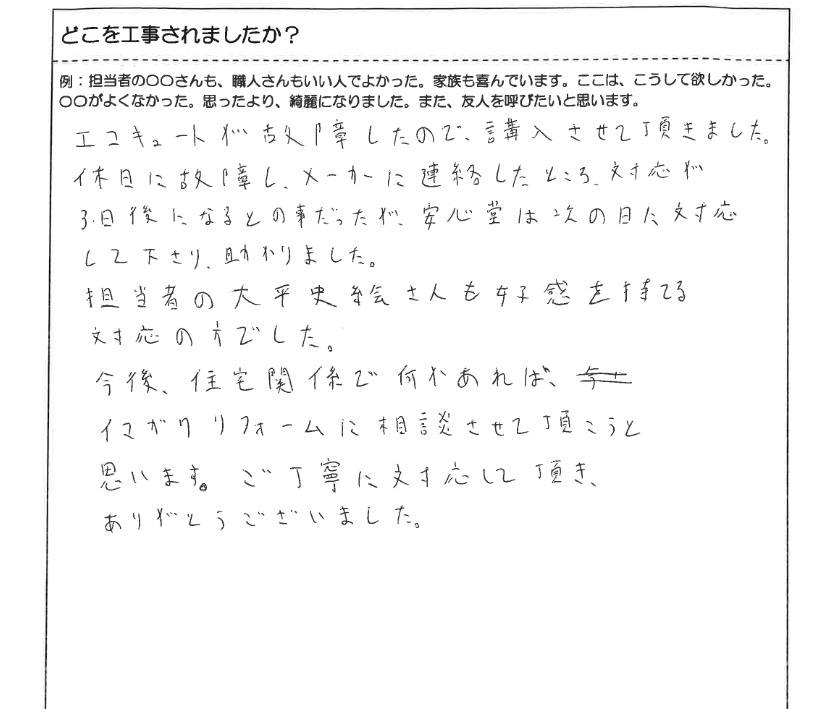 どこを工事されましたか？
例：担当者の〇〇さんも、職人さんもいい人でよかった。家族も喜んでいます。ここは、こうして欲しかった。
〇〇がよくなかった。思ったより、綺麗になりました。また、友人を呼びたいと思います。
エコキュートが故障したので、購入させて頂きました。
休日に故障し、メーカーに連絡したところ、対応が
3日後になるとの事だったが、安心堂は次の日に対応
して下さり、助かりました。
担当者の大平史絵さんも好感を持てる
対応の方でした。
今後、住宅関係で何かあれば、
イマガワリフォームに相談させて頂こうと
思います。ご丁寧に対応して頂き、
ありがとうございました。